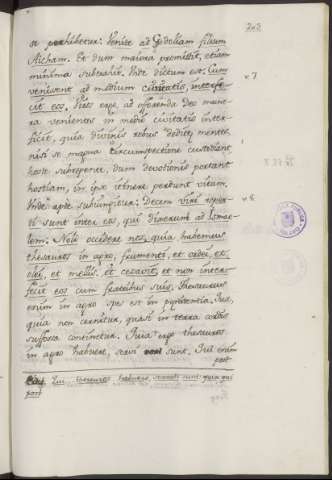 203
se perhibetur: Venite ad Godoliam filium
Aicham. Et dum maiora promittit, etiam
minima subtraxit. Unde dictum est: Cum
venissent ad medium civitatis, interfe-
cit eos. Hos ergo, ad offerenda Deo mune-
ra venientes in medio civitatis inter-
ficit, quia divinis rebus deditae mentes,
nisi se magna circumspectione custodiant
hoste subrepente, dum devotionis portant
hostiam, in ipso itinere perdunt vitam.
Unde apte subiungitur: Decem viri reper-
ti sunt inter eos, qui dixerunt ad Ismae-
lem: Noli occidere nos, quia habemus
thesauros in agro, frumenti, et ordei, et
olei, et mellis, et cessavit, et non inter-
fecit eos cum fratribus suis. Thesaurus
enim in agro spes est in pęnitentia. Quae,
quia non cernitur, quasi in terra cordis
suffossa continetur. Quia ergo thesauros
in agro habuere, servati sunt. Qui enim
post
v 7
v 8
Qui thesauros habuere, servati sunt: quia qui
post